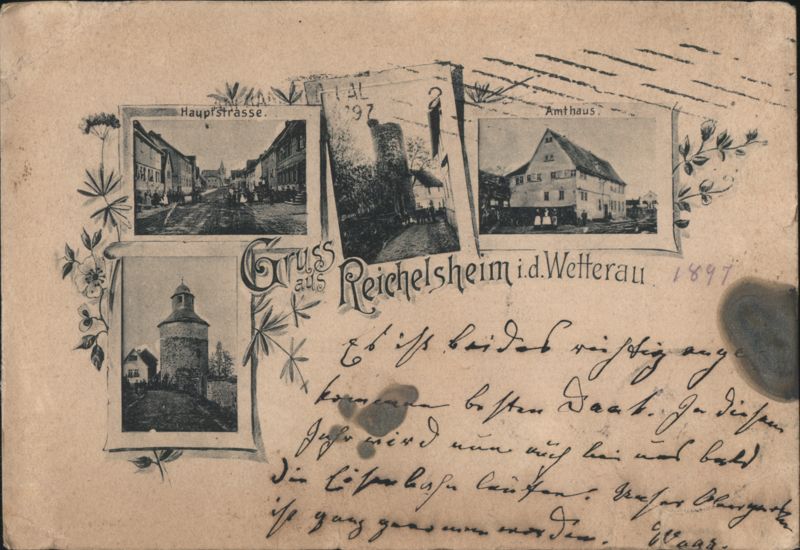 Hauptstrasse.
Amthaus.
Gruss
aus
Reichelsheim i.d. Wetterau
1897
Es ist beides richtig ange
kommen besten Dank. In diesem
Jahr wird nun auch bei uns bald
die Eisenbahn laufen. Unser
ist ganz genommen worden.